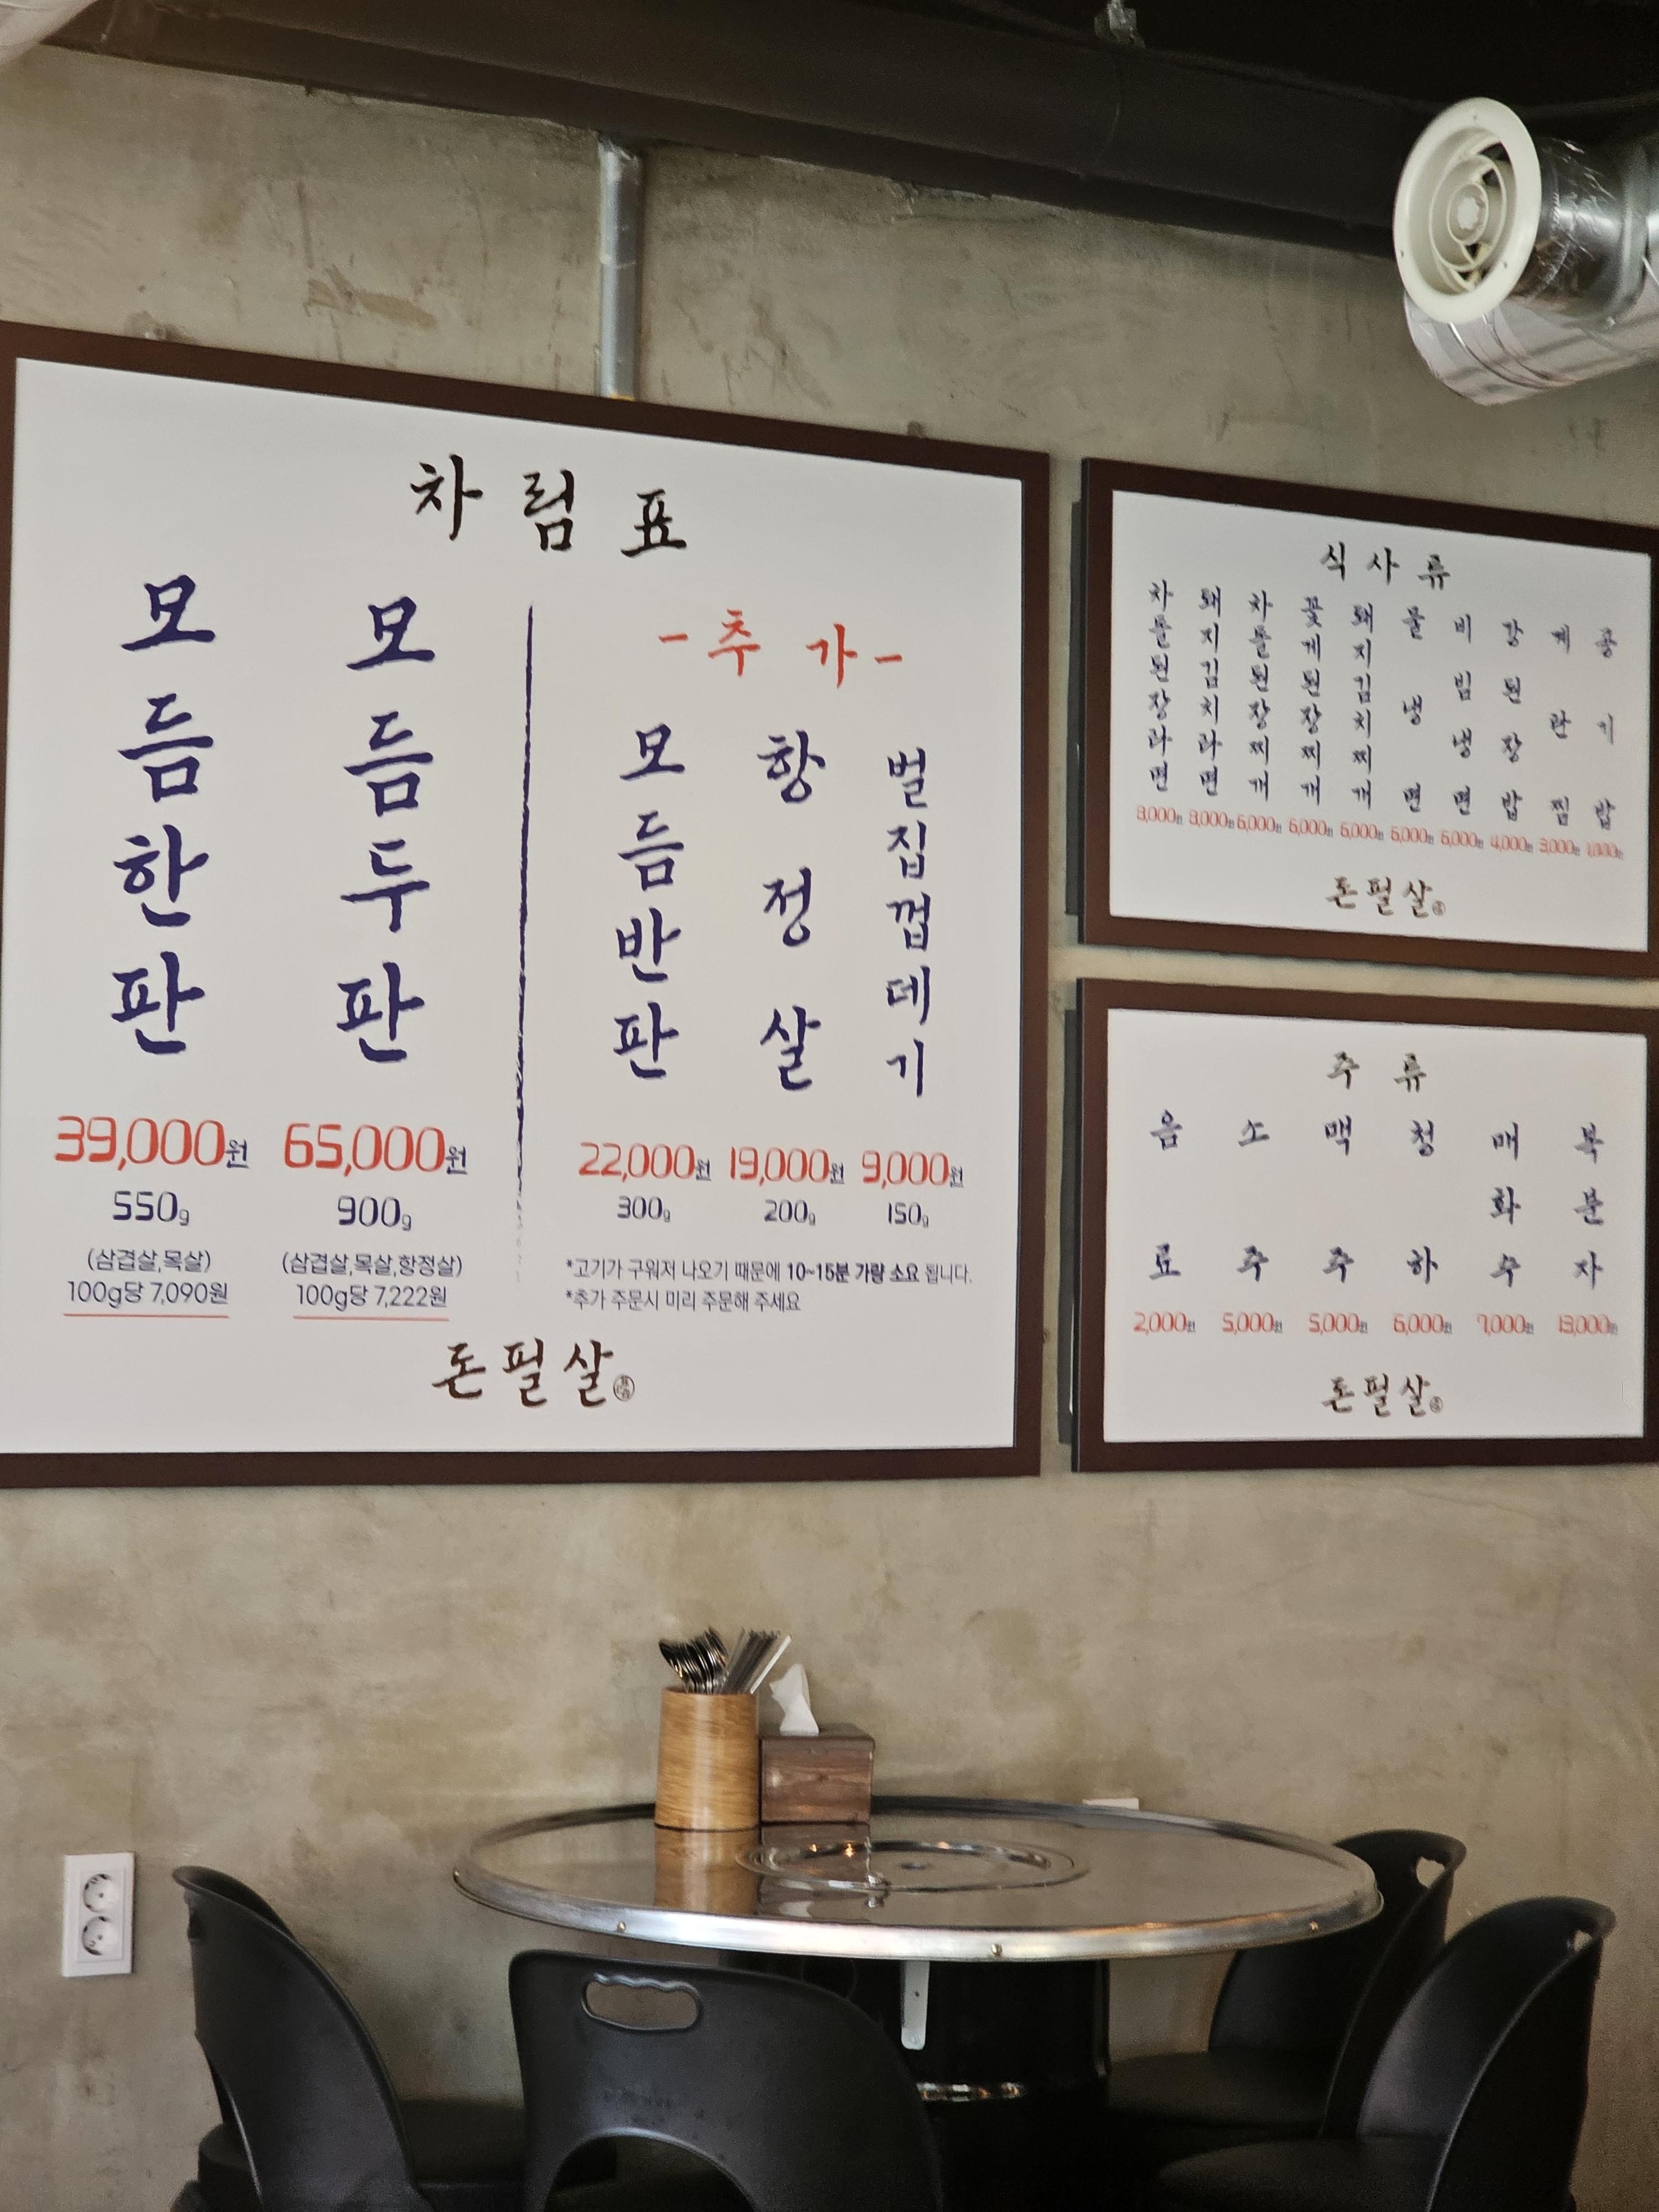 차림표
모듬한판
39,000원
550g
(삼겹살,목살)
100g당 7,090원
모듬두판
65,000원
900g
(삼겹살,목살,항정살)
100g당 7,222원
-추가-
모듬반판
22,000원
300g
항정살
19,000원
200g
벌집껍데기
9,000원
150g
*고기가 구워져 나오기 때문에 10~15분 가량 소요 됩니다.
*추가 주문시 미리 주문해 주세요
돈필살
식사류
차돌된장라면
3,000원
돼지김치라면
3,000원
차돌된장찌개
6,000원
꽃게된장찌개
6,000원
돼지김치찌개
6,000원
물냉면
6,000원
비빔냉면
6,000원
강된장밥
4,000원
계란찜
3,000원
공기밥
1,000원
돈필살
주류
음료
2,000원
소주
5,000원
맥주
5,000원
청하
6,000원
매화수
7,000원
복분자
13,000원
돈필살